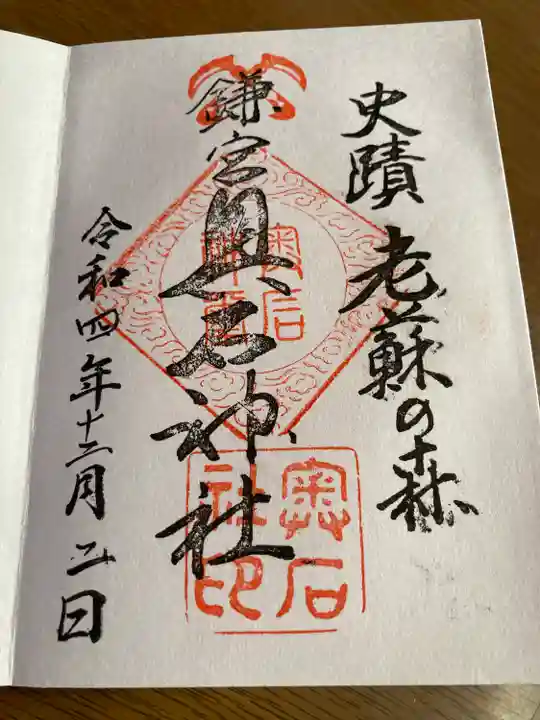 史蹟 老蘇の森
鎌宮奥石神社
令和四年十二月二日
奥石
神社
奥石
社印